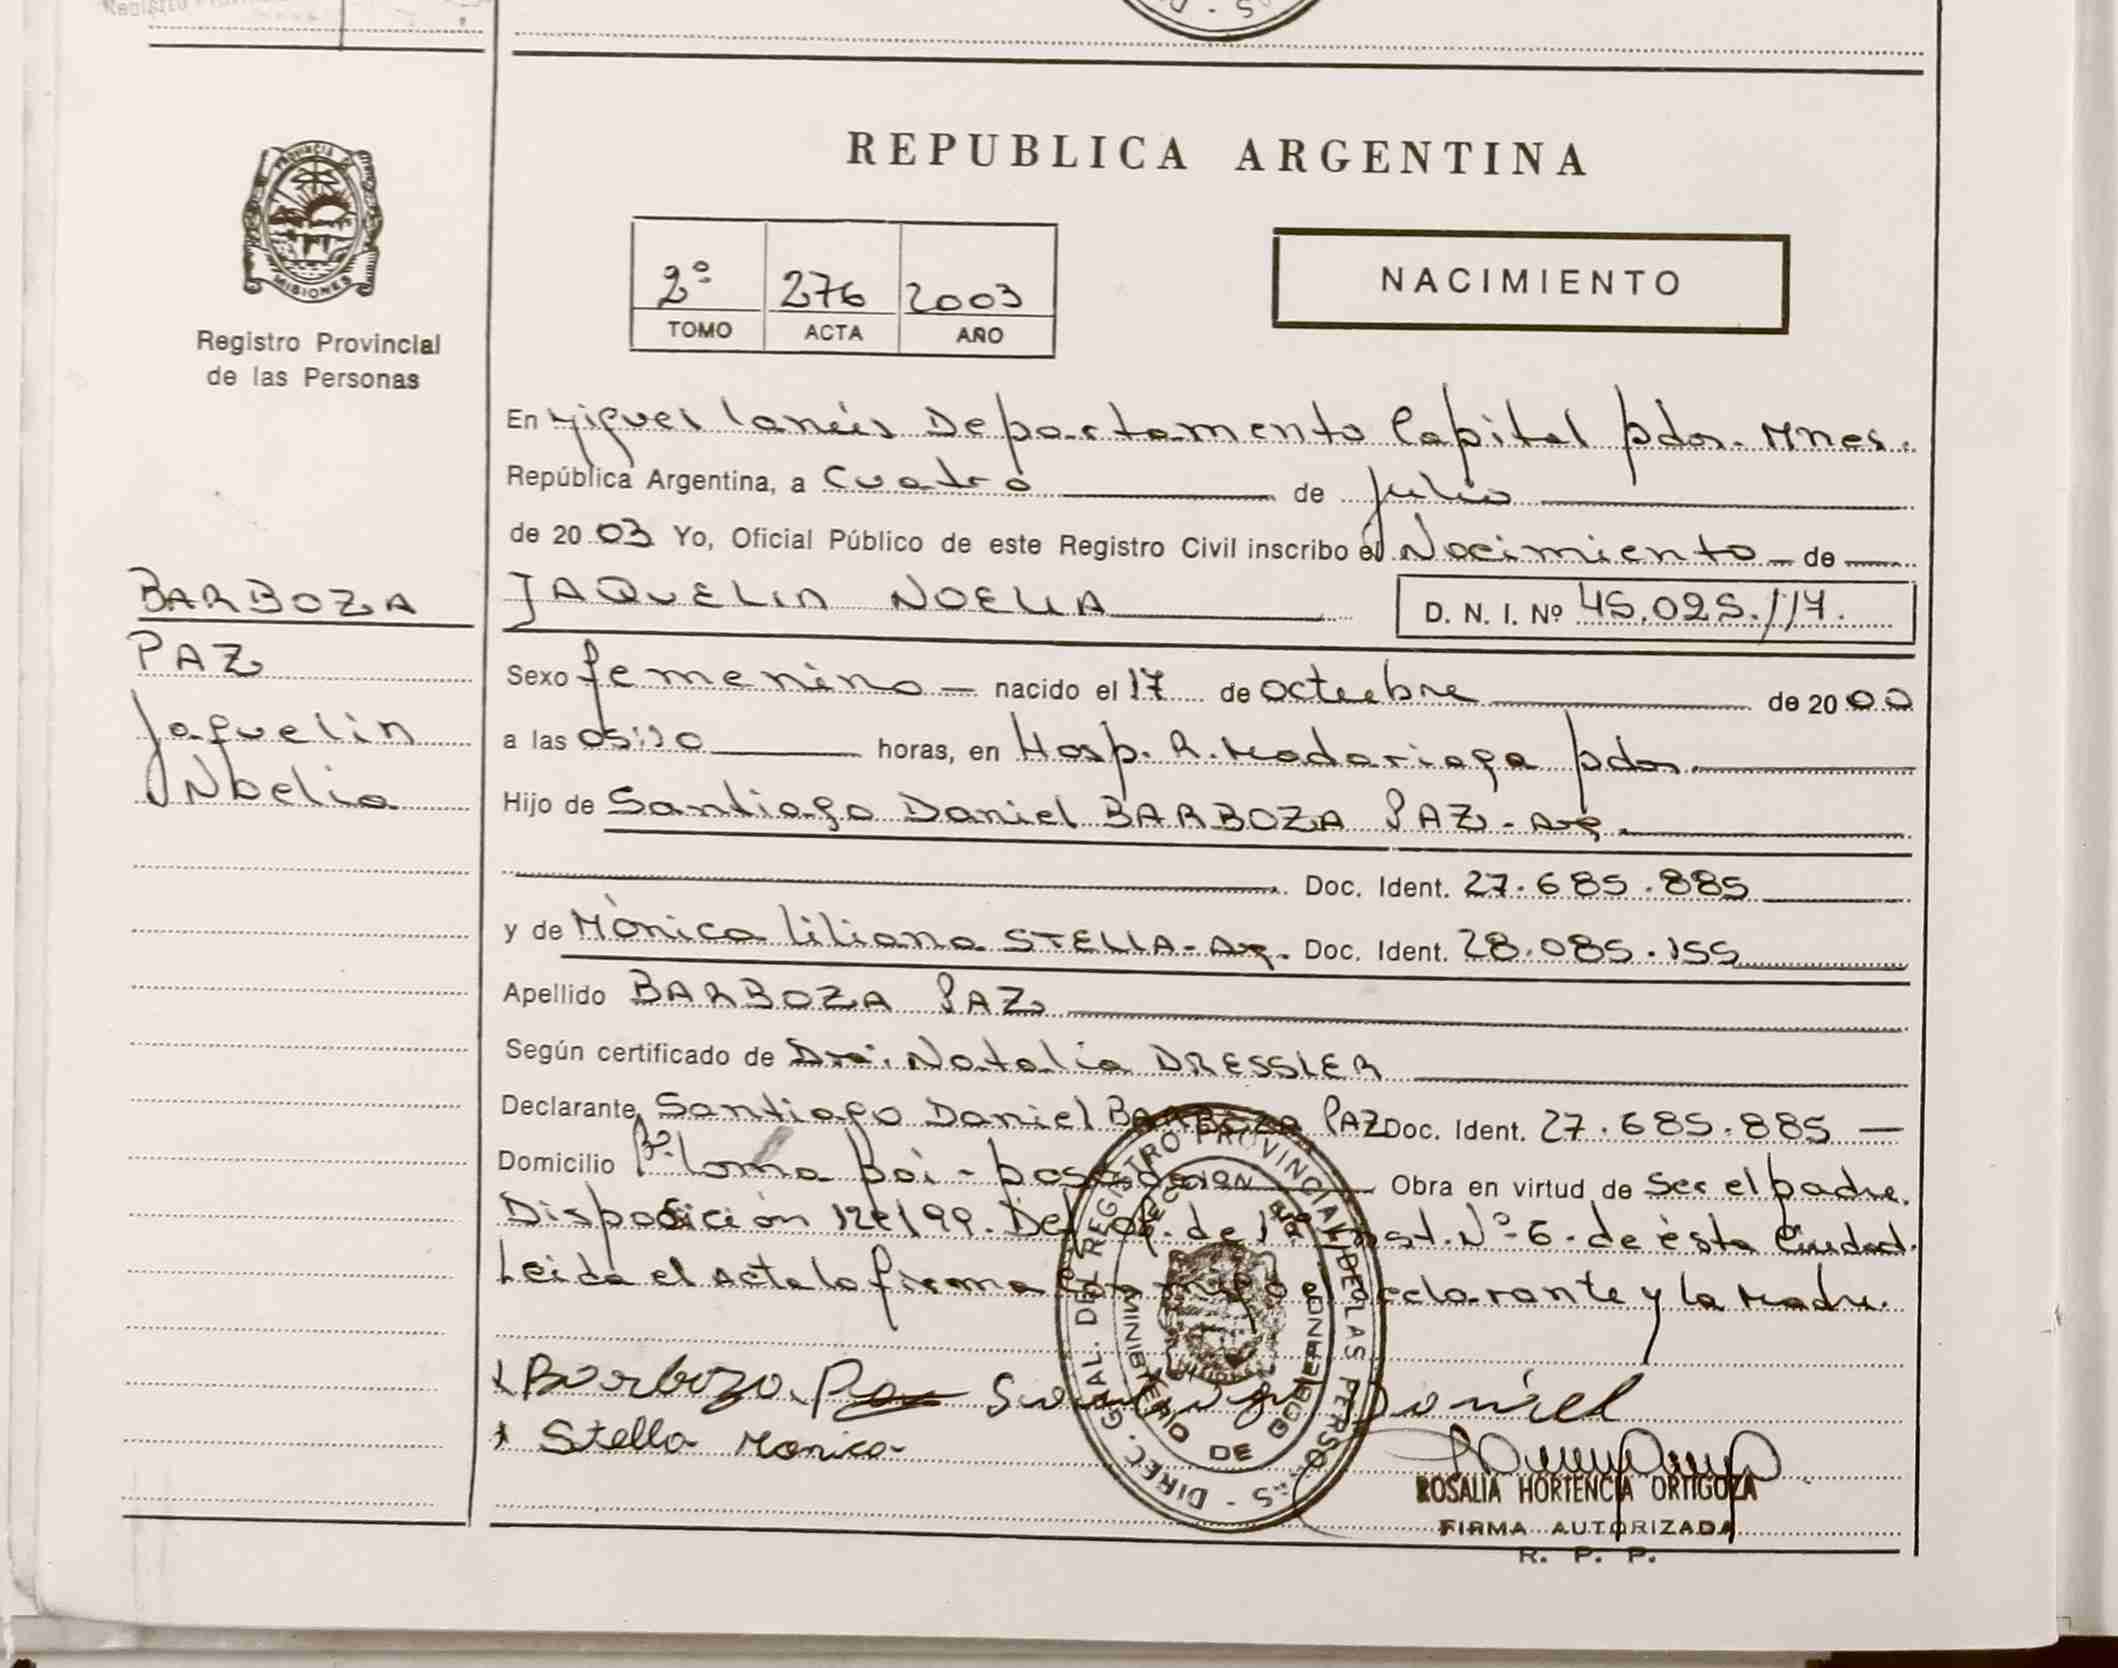 REPUBLICA ARGENTINA
PROVINCIA DE
MISIONES
Registro Provincial
de las Personas
2º 276 2003
TOMO ACTA AÑO
NACIMIENTO
En Miguel Lanús Departamento Capital pdas. Mnes.
República Argentina, a Cuatro de julio
de 2003 Yo, Oficial Público de este Registro Civil inscribo el Nacimiento de
BARBOZA
PAZ
Jaquelin
Noelia
JAQUELIN NOELIA D. N. I. Nº 45.025.117.
Sexo femenino nacido el 17 de octubre de 2000
a las horas, en Hosp. R. Madariaga pdas.
Hijo de Santiago Daniel BARBOZA PAZ - Arg.
Doc. Ident. 27.685.885
y de Mònica Liliana STELLA - Arg. Doc. Ident. 28.085.155
Apellido BARBOZA PAZ
Según certificado de Dra. Natalia DRESSLER
Declarante Santiago Daniel BARBOZA PAZ Doc. Ident. 27.685.885
Domicilio Bº Loma poi - posadas Obra en virtud de Ser el padre.
Disposición Def. Of. de 1ª Inst. Nº 6. de ésta Ciudad.
Leida el Acta la firma conmigo el declarante y la Madre.
Barboza Paz Santiago Daniel
Stella Monica
DIREC. GRAL. DEL REGISTRO PROVINCIAL DE LAS PERSONAS
MINISTERIO DE GOBIERNO
ROSALIA HORTENCIA ORTIGOZA
FIRMA AUTORIZADA
R. P. P.